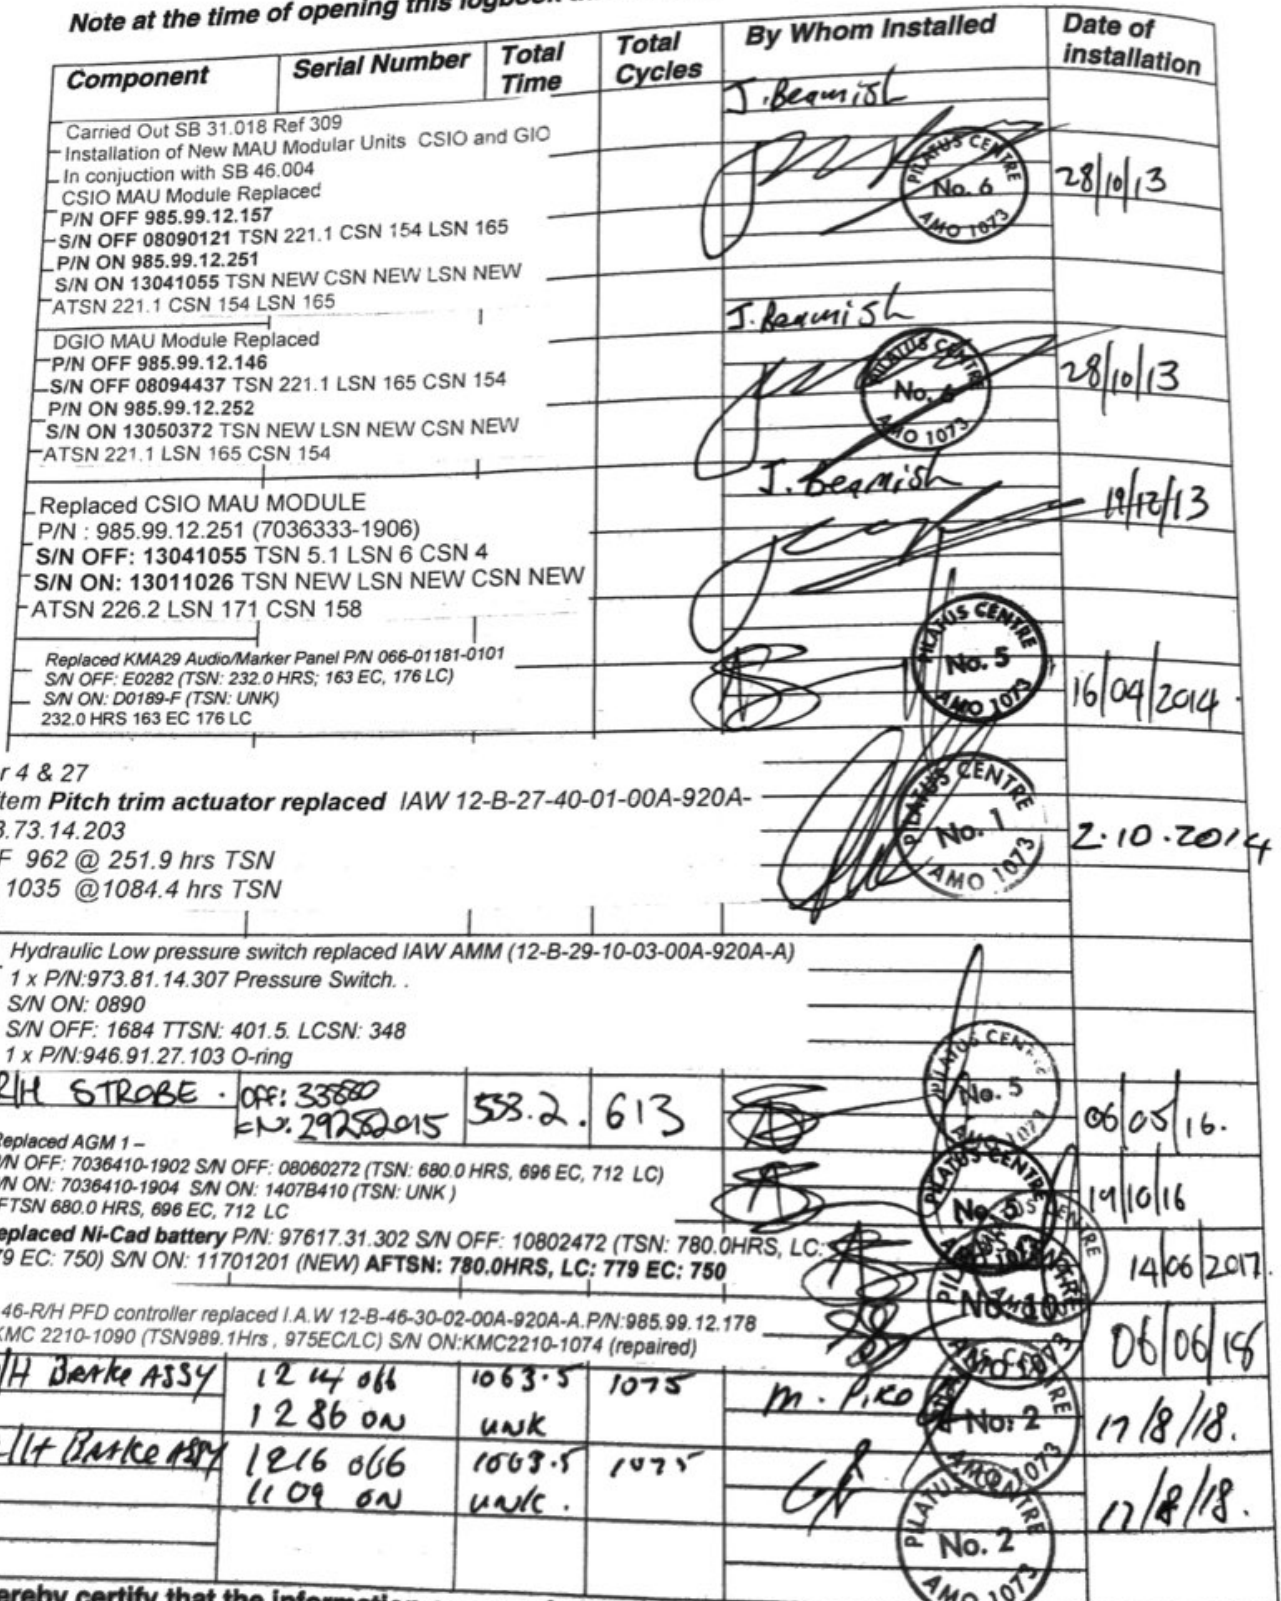 Note at the time of opening this logbook
Component Serial Number Total Time Total Cycles By Whom Installed Date of installation
Carried Out SB 31.018 Ref 309
Installation of New MAU Modular Units CSIO and GIO
In conjuction with SB 46.004
CSIO MAU Module Replaced
P/N OFF 985.99.12.157
S/N OFF 08090121 TSN 221.1 CSN 154 LSN 165
P/N ON 985.99.12.251
S/N ON 13041055 TSN NEW CSN NEW LSN NEW
ATSN 221.1 CSN 154 LSN 165
J. Beamish
PILATUS CENTRE No. 6 AMO 1073
28/10/13
DGIO MAU Module Replaced
P/N OFF 985.99.12.146
S/N OFF 08094437 TSN 221.1 LSN 165 CSN 154
P/N ON 985.99.12.252
S/N ON 13050372 TSN NEW LSN NEW CSN NEW
ATSN 221.1 LSN 165 CSN 154
J. Beamish
PILATUS CENTRE No. 6 AMO 1073
28/10/13
Replaced CSIO MAU MODULE
P/N : 985.99.12.251 (7036333-1906)
S/N OFF: 13041055 TSN 5.1 LSN 6 CSN 4
S/N ON: 13011026 TSN NEW LSN NEW CSN NEW
ATSN 226.2 LSN 171 CSN 158
J. Beamish
19/12/13
Replaced KMA29 Audio/Marker Panel P/N 066-01181-0101
S/N OFF: E0282 (TSN: 232.0 HRS; 163 EC, 176 LC)
S/N ON: D0189-F (TSN: UNK)
232.0 HRS 163 EC 176 LC
PILATUS CENTRE No. 5 AMO 1073
16/04/2014.
r 4 & 27
tem Pitch trim actuator replaced IAW 12-B-27-40-01-00A-920A-
3.73.14.203
F 962 @ 251.9 hrs TSN
1035 @1084.4 hrs TSN
PILATUS CENTRE No. 1 AMO 1073
2.10.2014
Hydraulic Low pressure switch replaced IAW AMM (12-B-29-10-03-00A-920A-A)
1 x P/N:973.81.14.307 Pressure Switch. .
S/N ON: 0890
S/N OFF: 1684 TTSN: 401.5. LCSN: 348
1 x P/N:946.91.27.103 O-ring
R/H STROBE. OFF: 33880 533.2. 613
PILATUS CENTRE No. 5 AMO 1073
06/05/16.
Replaced AGM 1 –
/N OFF: 7036410-1902 S/N OFF: 08060272 (TSN: 680.0 HRS, 696 EC, 712 LC)
/N ON: 7036410-1904 S/N ON: 1407B410 (TSN: UNK )
FTSN 680.0 HRS, 696 EC, 712 LC
PILATUS CENTRE No. 5
19/10/16
eplaced Ni-Cad battery P/N: 97617.31.302 S/N OFF: 10802472 (TSN: 780.0HRS, LC:
79 EC: 750) S/N ON: 11701201 (NEW) AFTSN: 780.0HRS, LC: 779 EC: 750
14/06/2017.
46-R/H PFD controller replaced I.A.W 12-B-46-30-02-00A-920A-A.P/N:985.99.12.178
KMC 2210-1090 (TSN989.1Hrs , 975EC/LC) S/N ON:KMC2210-1074 (repaired)
No. 10
06/06/18
/H Brake ASSY 1214 off 1063.5 1075
1286 ON UNK
No. 2 AMO 1073
17/8/18.
/H Brake ASSY 1216 off 1063.5 1075
1109 ON UNK.
PILATUS CENTRE No. 2 AMO 1073
17/8/18.
ereby certify that the information